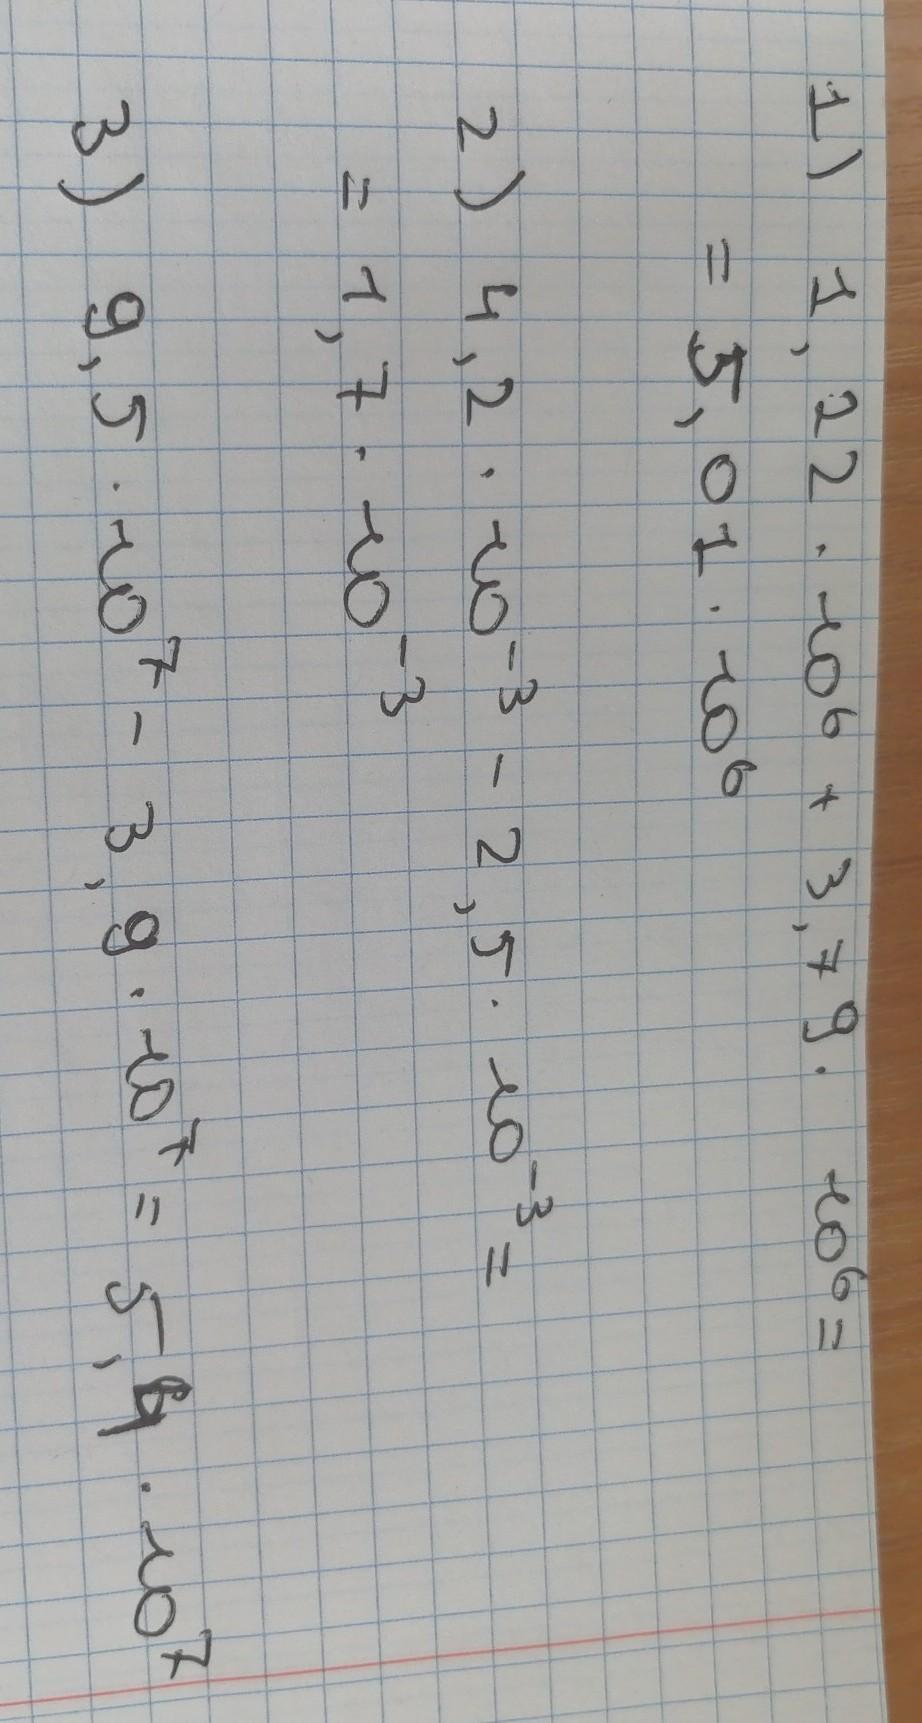 1) 1,22 · 10⁶ + 3,79 · 10⁶ =
= 5,01 · 10⁶
2) 4,2 · 10⁻³ - 2,5 · 10⁻³ =
= 1,7 · 10⁻³
3) 9,5 · 10⁷ - 3,9 · 10⁷ = 5,6 · 10⁷